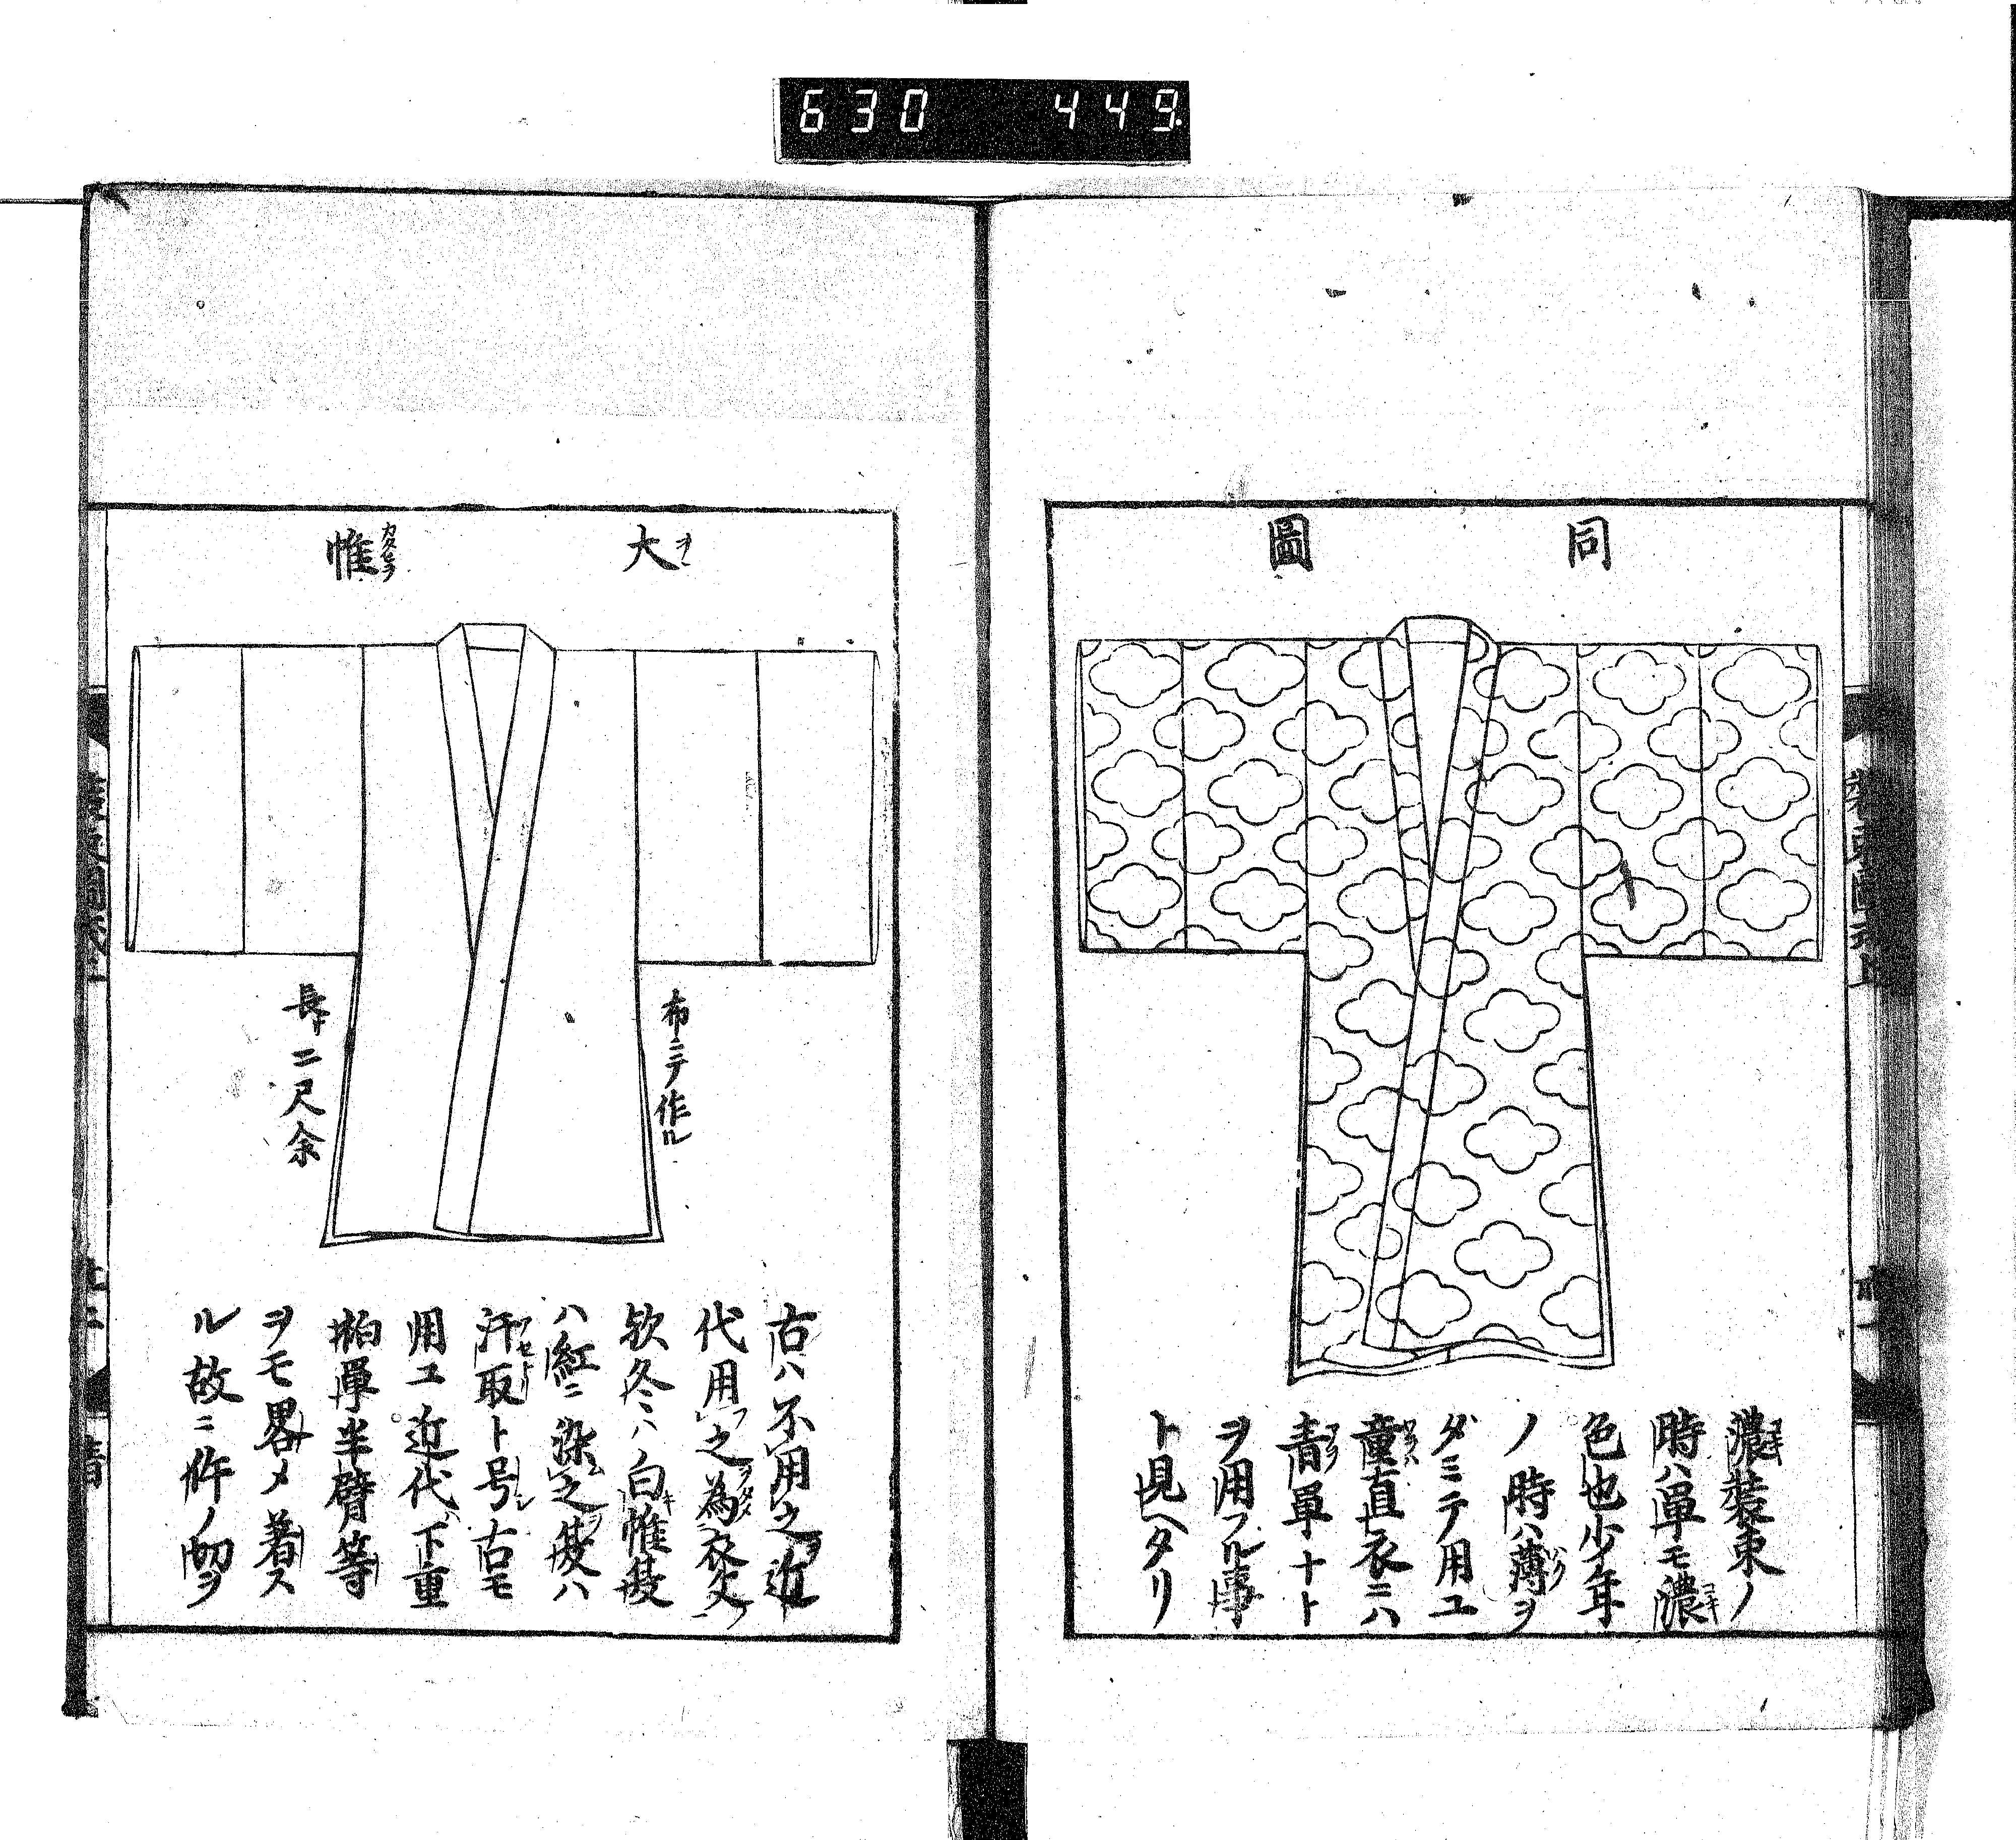 630 449.
同圖
濃装束ノ
時ハ單モ濃
色也少年
ノ時ハ薄ヲ
ダミテ用ユ
童直衣ニハ
青單ナト
ヲ用フル事
ト見ヘタリ
大帷
布ニテ作ル
長サ二尺余
古ハ不用之近
代用之為衣文
欤冬ハ白帷
ハ紅ニ染之
汗取ト号古モ
用ユ近代下重
袙單半臂等
ヲモ畧メ着ス
ル故ニ件ノ